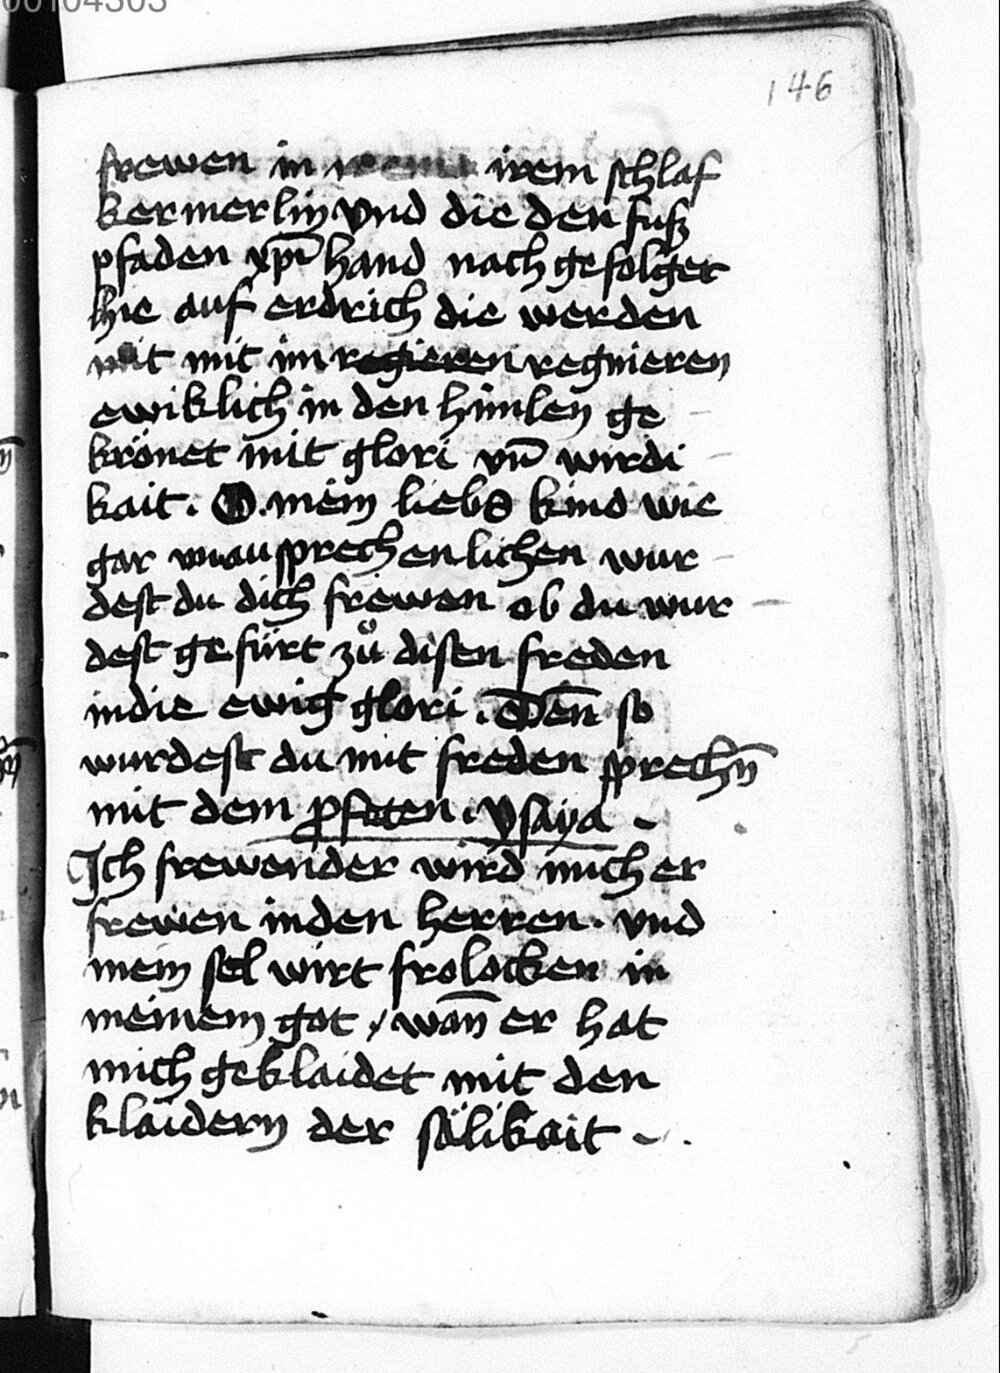 00104303
146
frewen in irem schlaf
kermerlin vnd die den fusz
pfaden xp̄i hand nach gefolget
hie auf erdrich die werden
mit mit im regieren regnieren
ewiklich in den himlen ge
krönet mit glori vn̄ wirdi
kait . O . mein liebs kind wie
gar vnausprechenlichen wur
dest du dich frewen ob du wur
dest gefürt zuͦ disen freden
in die ewig glori . Den̄ so
wurdest du mit freden sprechn̄
mit dem pfeten . ysaya
Ich frewender wird mich er
frewen in den herren . vnd
mein sel wirt frolocken in
meinem got / wan̄ er hat
mich geklaidet mit den
klaidern der sälikait .